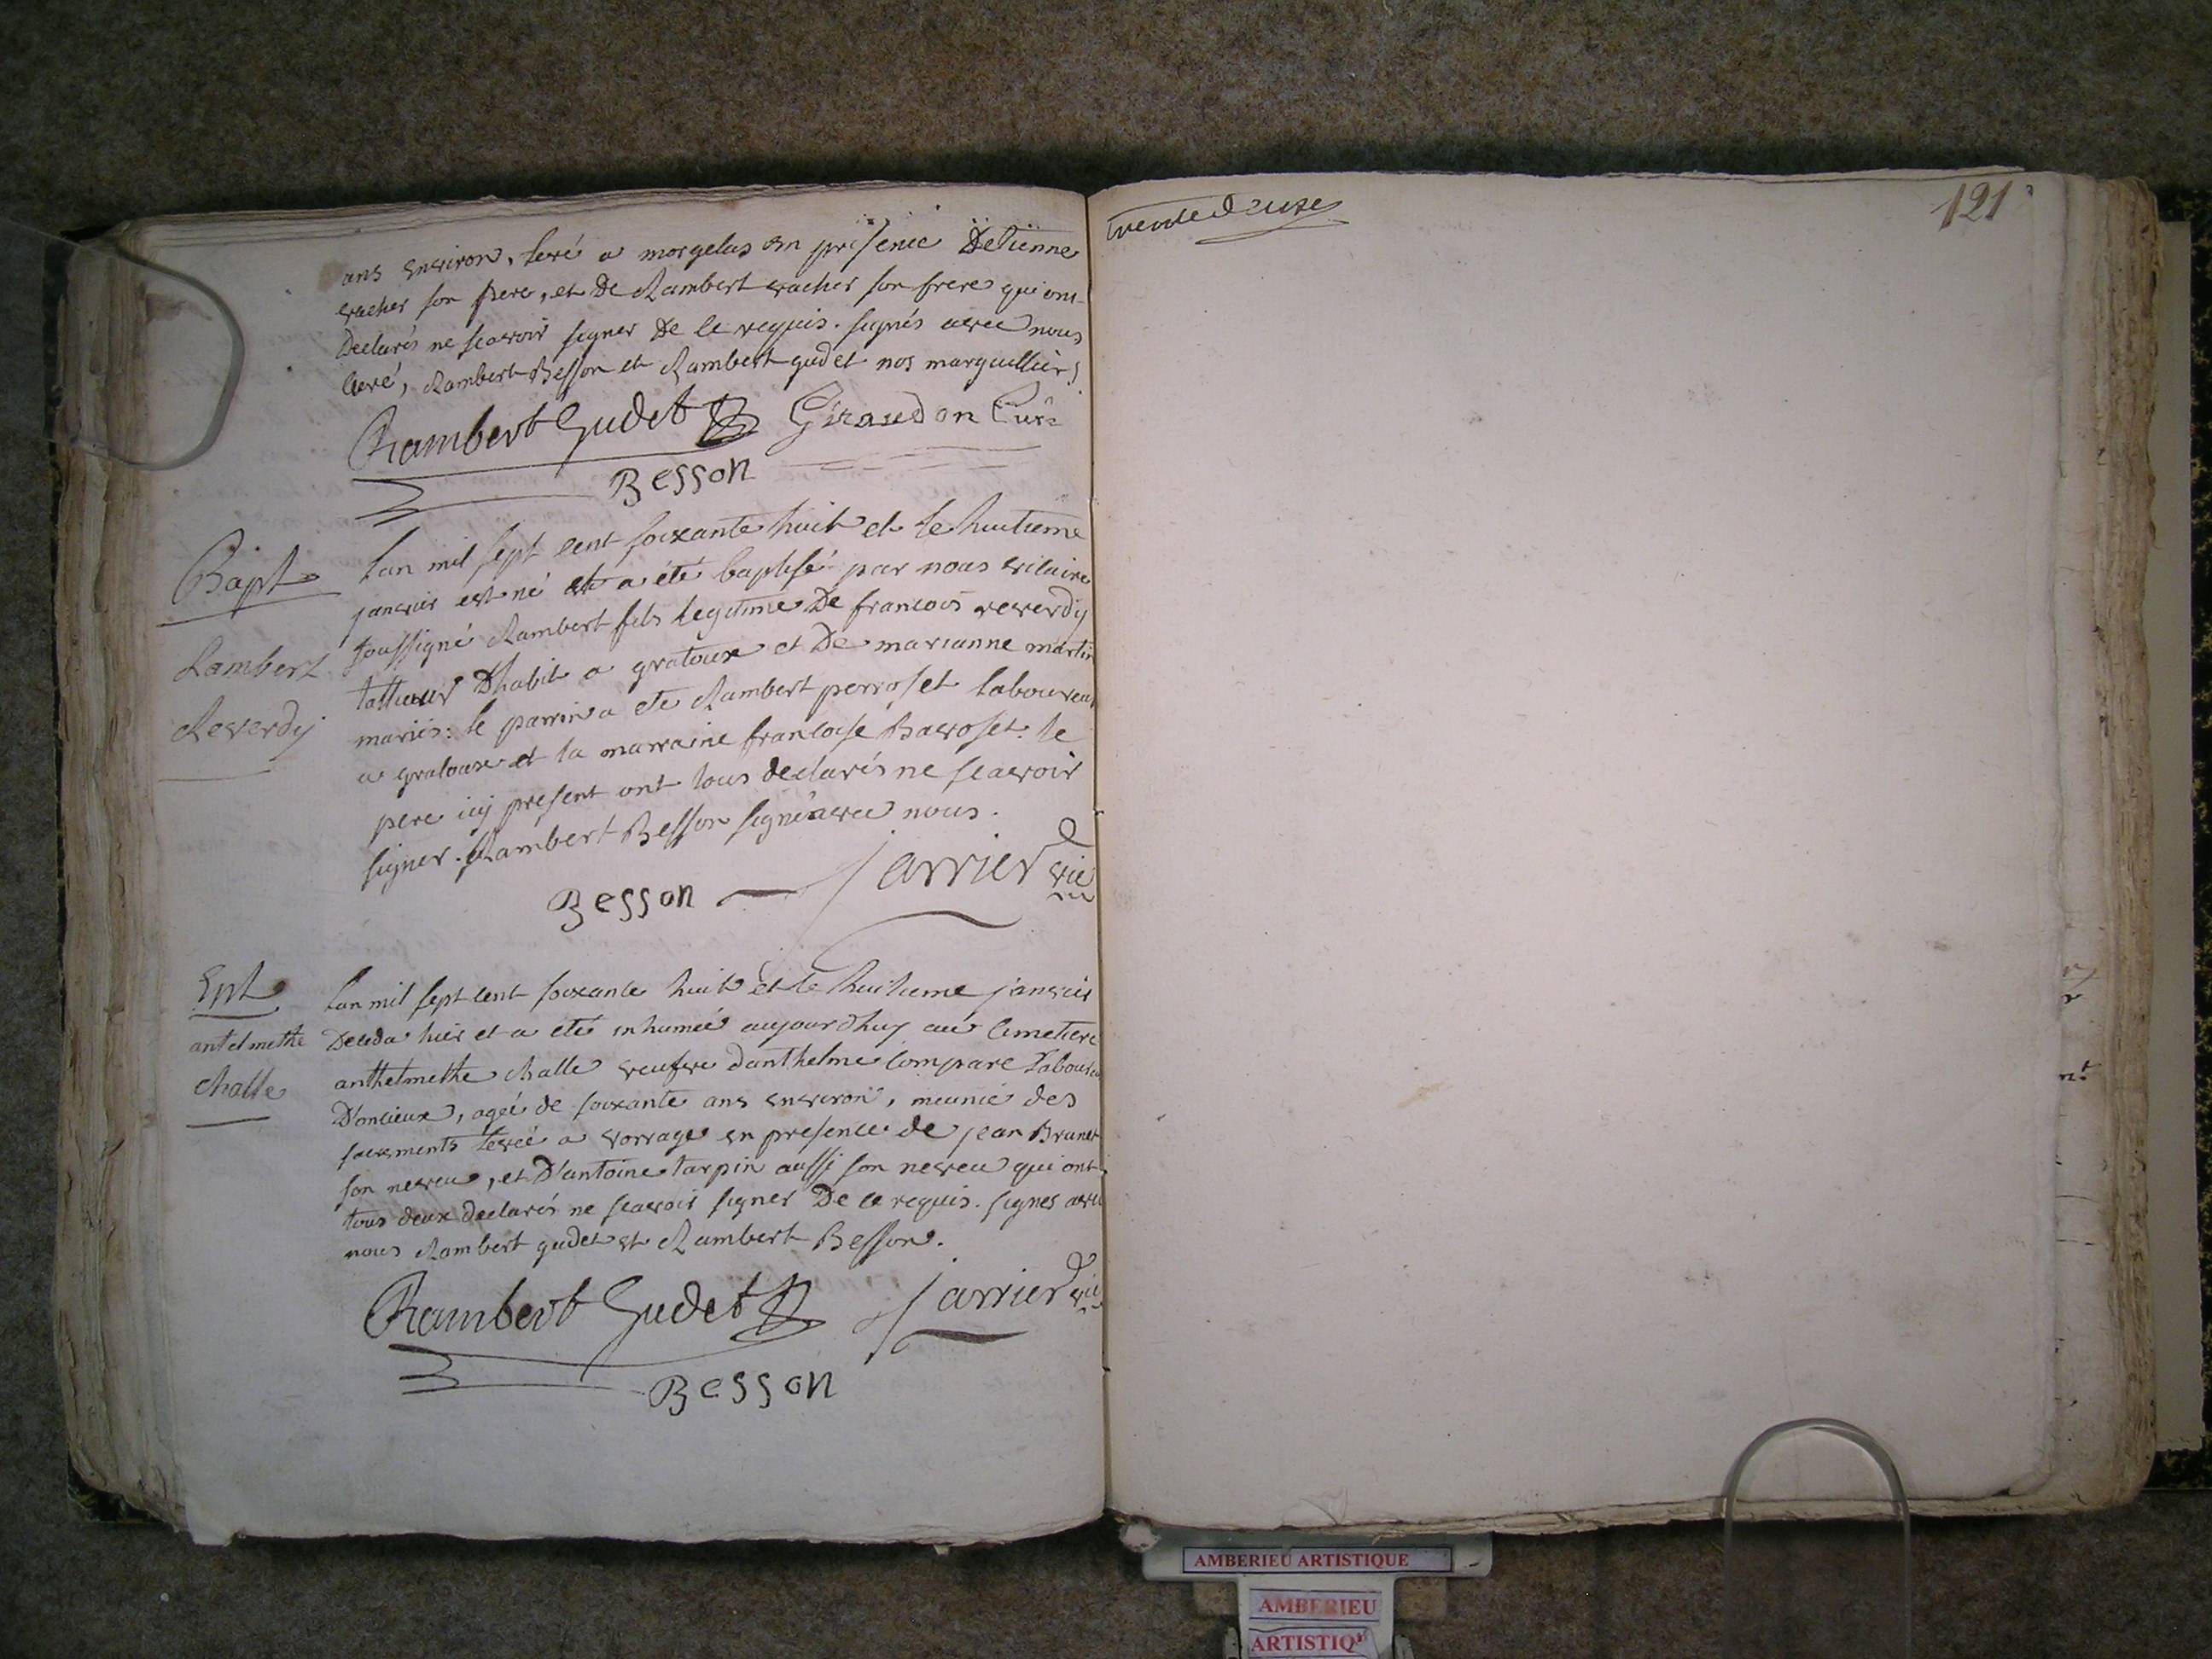 ans environ, levé a morgelas en présence Detienne
vacher son pere, et De Rambert vacher son frere qui ont
Declarés ne scavoir signer De ce requis. signés avec nous
curé, Rambert Besson et Rambert gudet nos marguilliers
Rambert Gudet Giraudon Curé
Besson
Bapt
Rambert
Reverdy
Lan mil sept cent soixante huit et le huitieme
janvier est né et a été baptisé par nous vicaire
soussigné Rambert fils legitime De francois reverdy
tailleur Dhabit a gratoux et De marianne martin
mariés: le parrin a ete Rambert perroset laboureur
a gratoux et la marraine francoise Bavoset. le
pere icy present ont tous declarés ne scavoir
signer. Rambert Besson signé avec nous.
Besson Jarrier vic
Ent
antelmethe
challe
Lan mil sept cent soixante huit et le huitieme janvier
Deceda hier et a eté inhumée aujourdhuy au Cemetiere
anthelmethe challe veufve danthelme Compare Laboureur
D'oncieux, ageé de soixante ans environ, meunie des
sacrements levée a vorrage en presence de jean Brunet
son neveu, et D'antoine tarpin aussi son neveu qui ont
tous deux declarés ne scavoir signer De ce requis. signes avec
nous Rambert gudet et Rambert Besson.
Rambert Gudet Jarrier vic
Besson
121
AMBERIEU ARTISTIQUE
AMBERIEU
ARTISTIQ